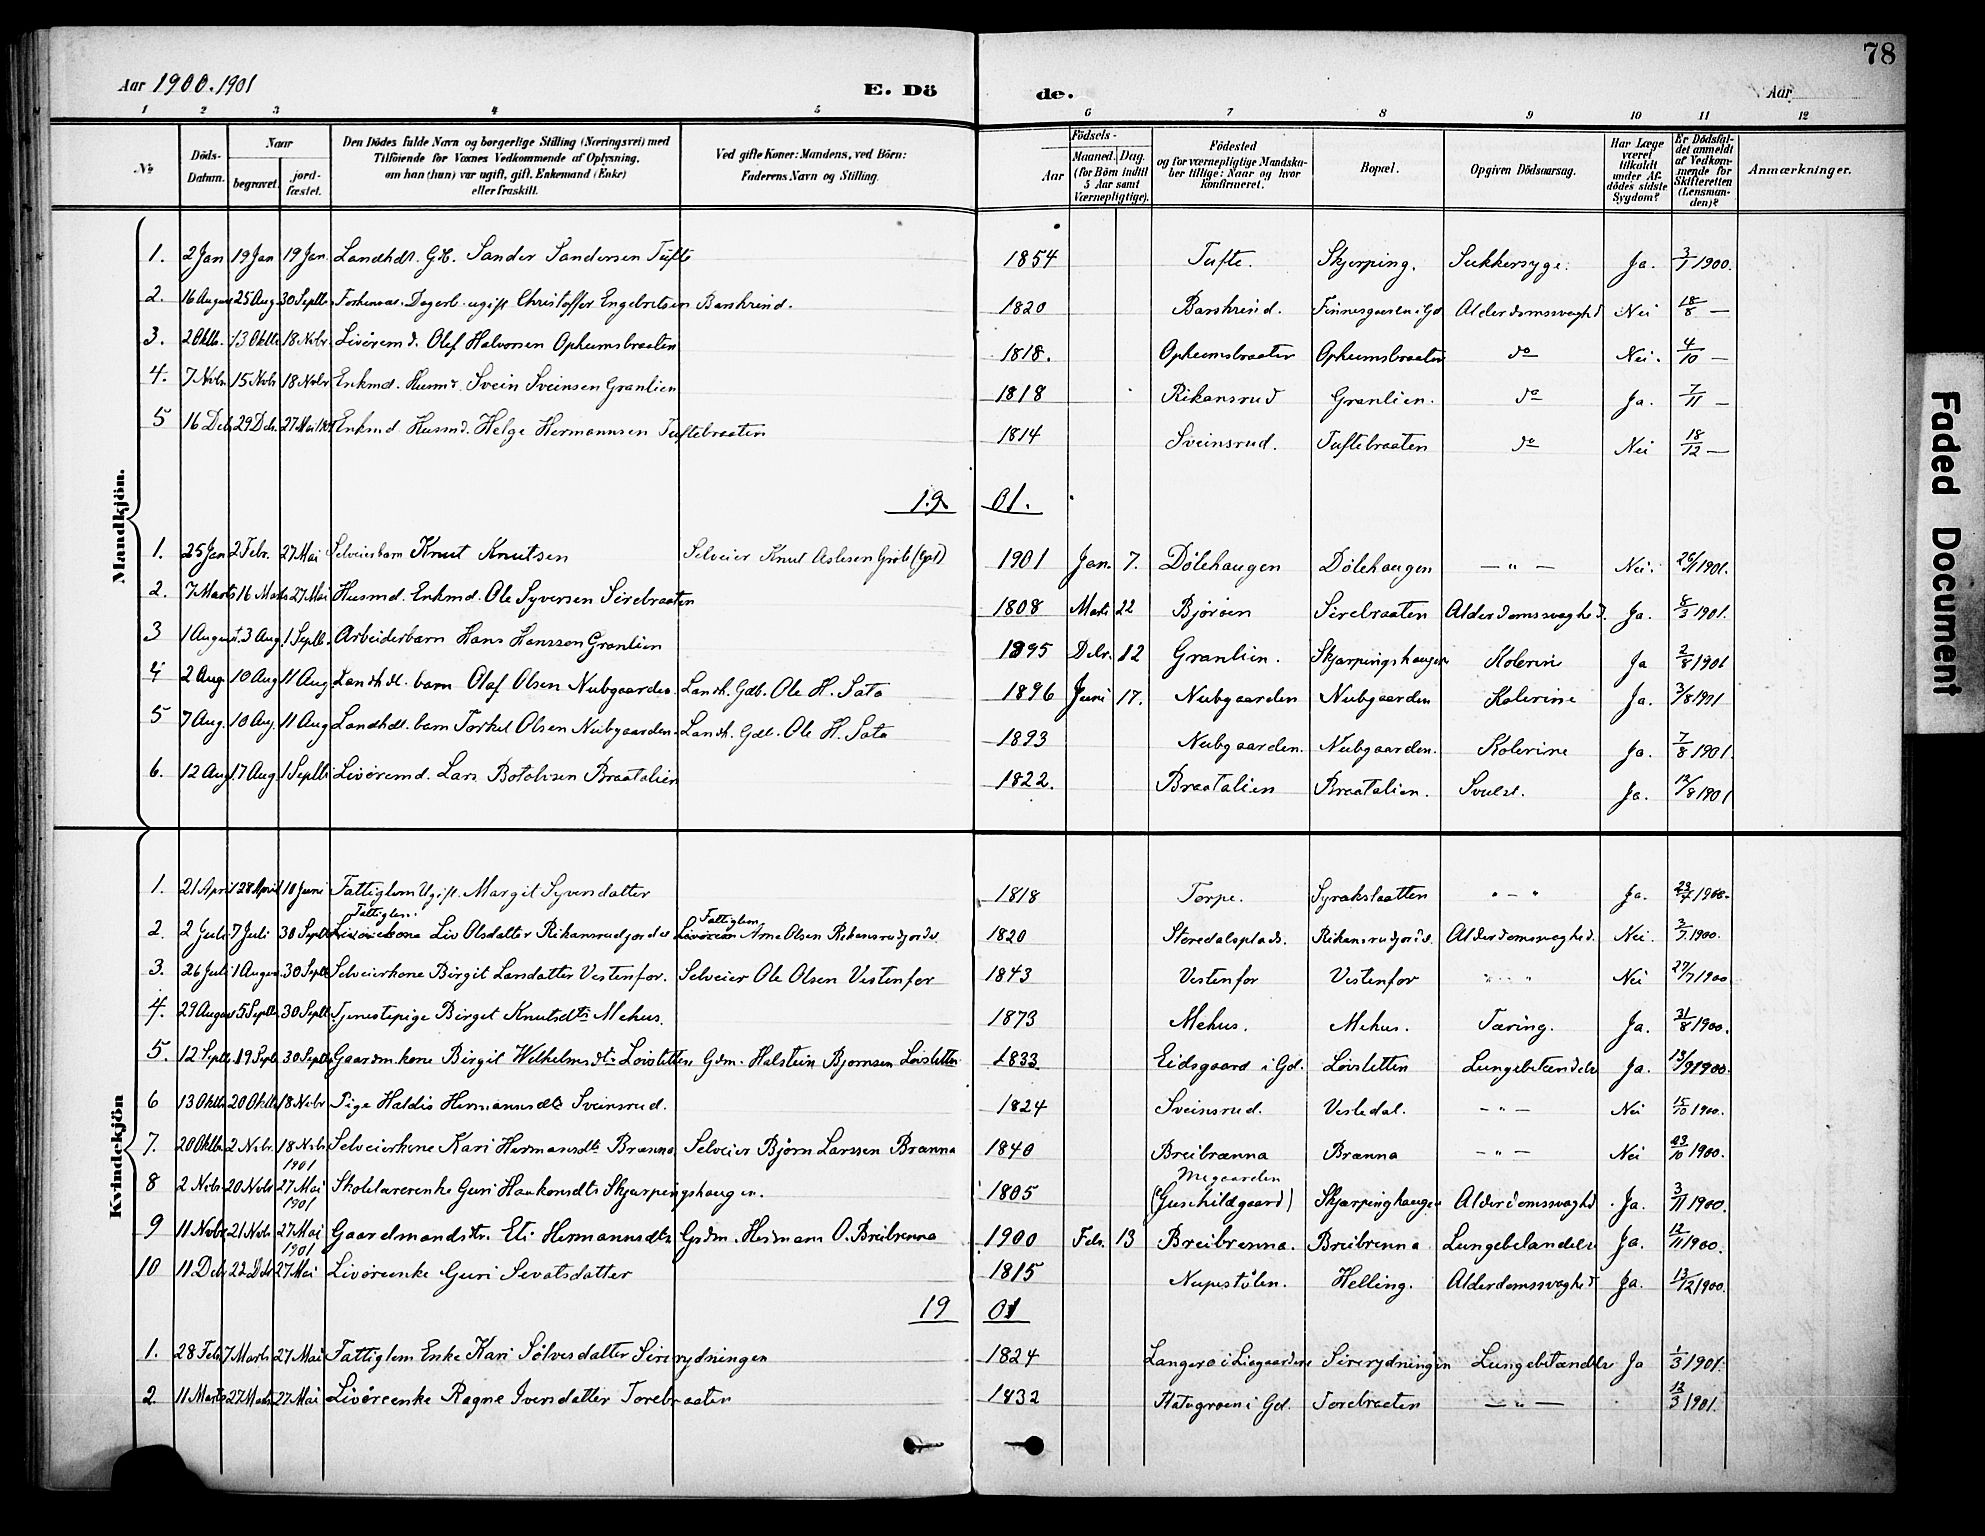 78
Aar 1900. 1901
E. Dö de.
Aar
1 2 3 4 5 6 7 8 9 10 11 12
No
Döds-Datum.
Naar begravet. jord-fæstet.
Den Dödes fulde Navn og borgerlige Stilling (Næringsvei) med Tilföiende for Voxnes Vedkommende af Oplysning, om han (hun) var ugift, gift, Enkemand (Enke) eller fraskilt.
Ved gifte Koner: Mandens, ved Börn: Faderens Navn og Stilling.
Födsels- Aar Maaned. Dag. (for Börn indtil 5 Aar samt Værnepligtige).
Födested og for værnepligtige Mandska-ber tillige: Naar og hvor konfirmeret.
Bopæl.
Opgiven Dödsaarsag.
Har Læge været tilkaldt under Af-dödes sidste Sygdom?
Er Dödsfal-det anmeldt af Vedkom-mende for Skifteretten (Lensman-den)?
Anmærkninger.
Mandkjön.
1. 2 Jan 19 Jan 19 Jan. Landhdl. Gbr. Sander Sandersen Tufte 1854 Tufte. Skjerping. Sukkersyge. Ja. 3/1 1900.
2. 16 August 25 Aug 30 Septb. Dagarb. ugift Christoffer Engebretsen Barskrind. 1820 Barskrind. Finnesgaarden i Gol Alderdomssvaghd Nei 18/8 —
3. 2 Oktb. 13 Oktb. 18 Nvbr. Livöremd. Olef Halvorsen Opheimsbraaten 1818. Opheimsbraaten Opheimsbraaten do Nei. 4/10 —
4. 7 Nvbr 15 Nvbr 18 Nvbr Enkmd. Husmd. Svein Sveinsen Granlien 1818 Rikansrud Granlien. do Ja. 7/11 —
5 16 Dcb. 29 Dcb. 27 Mai 1901 Enkmd Husmd. Helge Hermannsen Tuftebraaten 1814 Sveinsrud. Tuftebraaten do Nei 18/12 —
19 01.
1. 25 Jan 2 Febr. 27 Mai Selveierbarn Knut Knutsen Selveier Knut Aslesen Gröte (Gol) 1901 Jan. 7. Dölehaugen Dölehaugen — " — Nei. 26/1 1901.
2. 7 Marts 16 Marts 27 Mai Husmd. Enkmd. Ole Syversen Sirebraaten 1808 Marts 22 Björöen Sirebraaten Alderdomssvaghed. Ja. 8/3 1901.
3 1 August. 3 Aug. 1 Septb. Arbeiderbarn Hans Hansson Granlien 1895 Dcbr. 12 Granlien. Skjærpingshaugen Kolerine Ja 2/8 1901
4 2 Aug. 10 Aug 11 Aug Landhdl. barn Olaf Olsen Nubgaarden Landh. Gdb. Ole H. Sata 1896 Juni 17. Nubgaarden Nubgaarden Kolerine Ja. 3/8 1901
5 7 Aug. 10 Aug. 11 Aug Landhdl. barn Torkel Olsen Nubgaarden. Landh. Gdb. Ole H. Sata 1893 Nubgaarden. Nubgaarden. Kolerine Ja. 7/8 1901.
6. 12 Aug 17 Aug. 1 Septb Livöremd. Lars Botolvsen Braatalien 1822. Braatalien Braatalien. Svulst. Ja. 12/8 1901
Kvindekjön
1. 21 April 28 April 10 Juni Fattiglem Ugift. Margit Syversdatter 1818 Torpe. Syrakslaatten " — " Ja. 23/4 1900.
Fattiglem. Fattiglem
2. 2 Juli 7 Juli 30 Septb. Livörekone Liv Olsdatter Rikansrudjordet Livöremd Arne Olsen Rikansrudjordet 1820 Storedalsplads. Rikansrudjordet. Alderdomssvaghed. Nei. 3/7 1900.
3. 26 Juli 1 August 30 Septb Selveierkone Birgit Larsdatter Vestenfor. Selveier Ole Olsen Vestenfor 1843 Vestenfor Vestenfor " " Nei 27/7 1900
4. 29 August 5 Septb. 30 Septb Tjenestepige Birgit Knutsdtr Mehus. 1873 Mehus. Mehus. Tæring. Ja. 31/8 1900.
5. 12 Septb. 19 Septb. 30 Septb Gaardmkone Birgit Wilhelmsdtr Lövsletten Gdm. Halstein Bjørnsen Lövsletten 1833 Eidsgaard i Gol. Lövsletten Lungebetændelse Ja. 13/9 1900.
6 13 Oktb. 20 Oktb. 18 Nvbr Pige Haldis Hermannsdtr Sveinsrud. 1824 Sveinsrud. Vesledal. — " — Nei 15/10 1900.
7. 20 Oktb. 2 Nvbr. 18 Nvbr Selveierkone Kari Hermansdtr Brænna Selveier Björn Larssen Brænna 1840 Breibrænna Brænna — " — Nei 23/10 1900.
1901
8 2 Nvbr. 20 Nvbr. 27 Mai Skolelærerenke Guri Haakonsdtr Skjærpingshaugen. 1805 (Guschildgaard) Skjærpinghaugen Alderdomssvaghd Ja. 3/11 1900.
1901
9 11 Nvbr. 21 Nvbr. 27 Mai Gaardmandsdtr. Eli Hermannsdtr. Grdm. Herman O. Breibrenna 1900 Feb. 13 Breibrenna. Breibrenna Lungebetændelse Ja. 12/11 1900.
1901
10 11 Dcb. 22 Dcb. 27 Mai Livöreenke Guri Sevatsdatter 1815 Nupestölen. Helling. Alderdomssvaghed Ja. 13/12 1900.
19 01
1. 28 Feb. 7 Marts 27 Mai Fattiglem Enke Kari Sölvesdatter Sirerydningen 1824 Sirerydningen Lungebetændelse Ja 1/3 1901.
2 11 Marts 27 Marts 27 Mai Livöreenke Ragne Iversdatter Torebraaten 1832 Torebraaten — " — 12/3 1901.
Faded Document